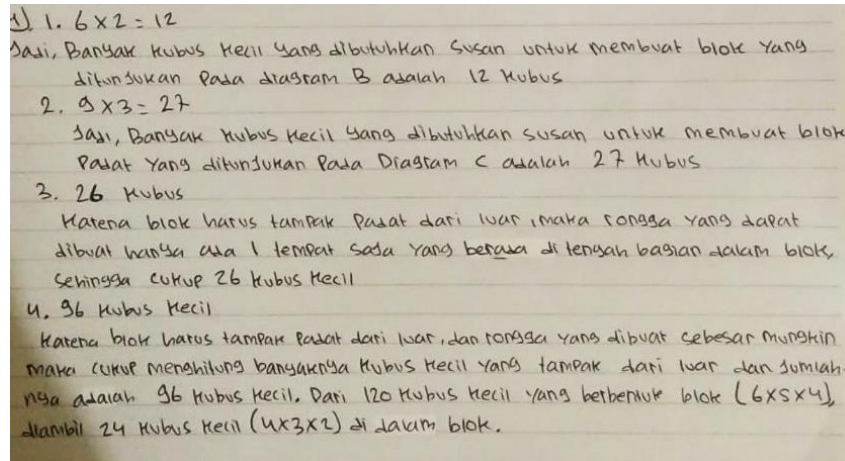 1) 1. 6 x 2 = 12
Jadi, Banyak kubus kecil yang dibutuhkan Susan untuk membuat blok yang
ditunjukan Pada diagram B adalah 12 kubus
2. 9 x 3 = 27
Jadi, Banyak kubus kecil yang dibutuhkan susan untuk membuat blok
Padat Yang ditunjukan Pada Diagram C adalah 27 kubus
3. 26 kubus
Karena blok harus tampak Padat dari luar, maka rongga yang dapat
dibuat hanya ada 1 tempat saja yang berada di tengah bagian dalam blok,
Sehingga cukup 26 kubus kecil
4. 96 kubus kecil
Karena blok harus tampak Padat dari luar, dan rongga yang dibuat sebesar mungkin
maka cukup menghitung banyaknya kubus kecil yang tampak dari luar dan jumlah-
nya adalah 96 kubus kecil. Dari 120 kubus kecil yang berbentuk blok (6x5x4),
diambil 24 kubus kecil (4x3x2) di dalam blok.